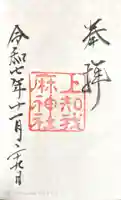 奉拝
上知我
麻神社
令和七年十一月二十九日